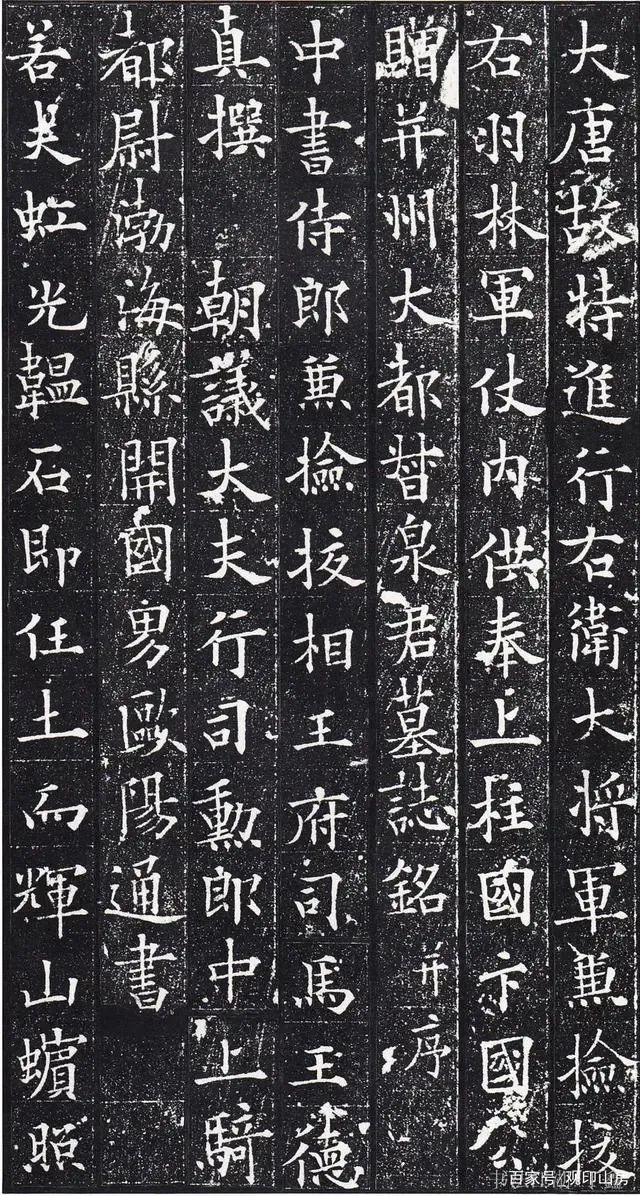 大唐故特進行右衛大将軍兼撿挍
右羽林軍仗内供奉上柱國卞國公
贈并州大都督泉君墓誌銘并序
中書侍郎兼撿挍相王府司馬王德
真撰 朝議大夫行司勳郎中上騎
都尉渤海縣開國男歐陽通書
若夫虹光韞石即任土而輝山蠙照
百家号/观印山房